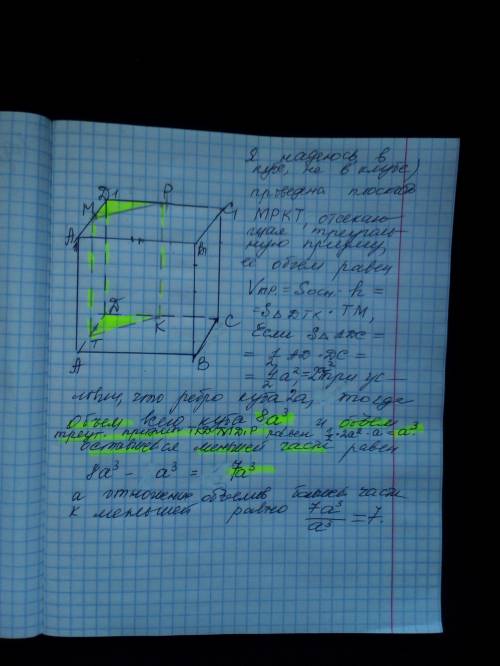 Я надеюсь в
кубе, не в клубе)
проведена плоскость
МРКТ, отсекаю-
щая треуголь-
ную призму,
ее объем равен
Vпр.= Sосн · h =
= S△DTK · TM,
Если S△ADC =
= 1/2 AD · DC =
= 4/2 a² = 2a² при ус-
ловии, что ребро куба 2a, тогда
объем всего куба 8a³ и объем
треуг. призмы равен 1/2 · 2a² · a = a³.
оставшейся меньшей части равен
8a³ - a³ = 7a³
а отношение объемов большей части
к меньшей равно 7a³/a³ = 7.
D1 P
M C1
A1 B1
D K C
T
A B